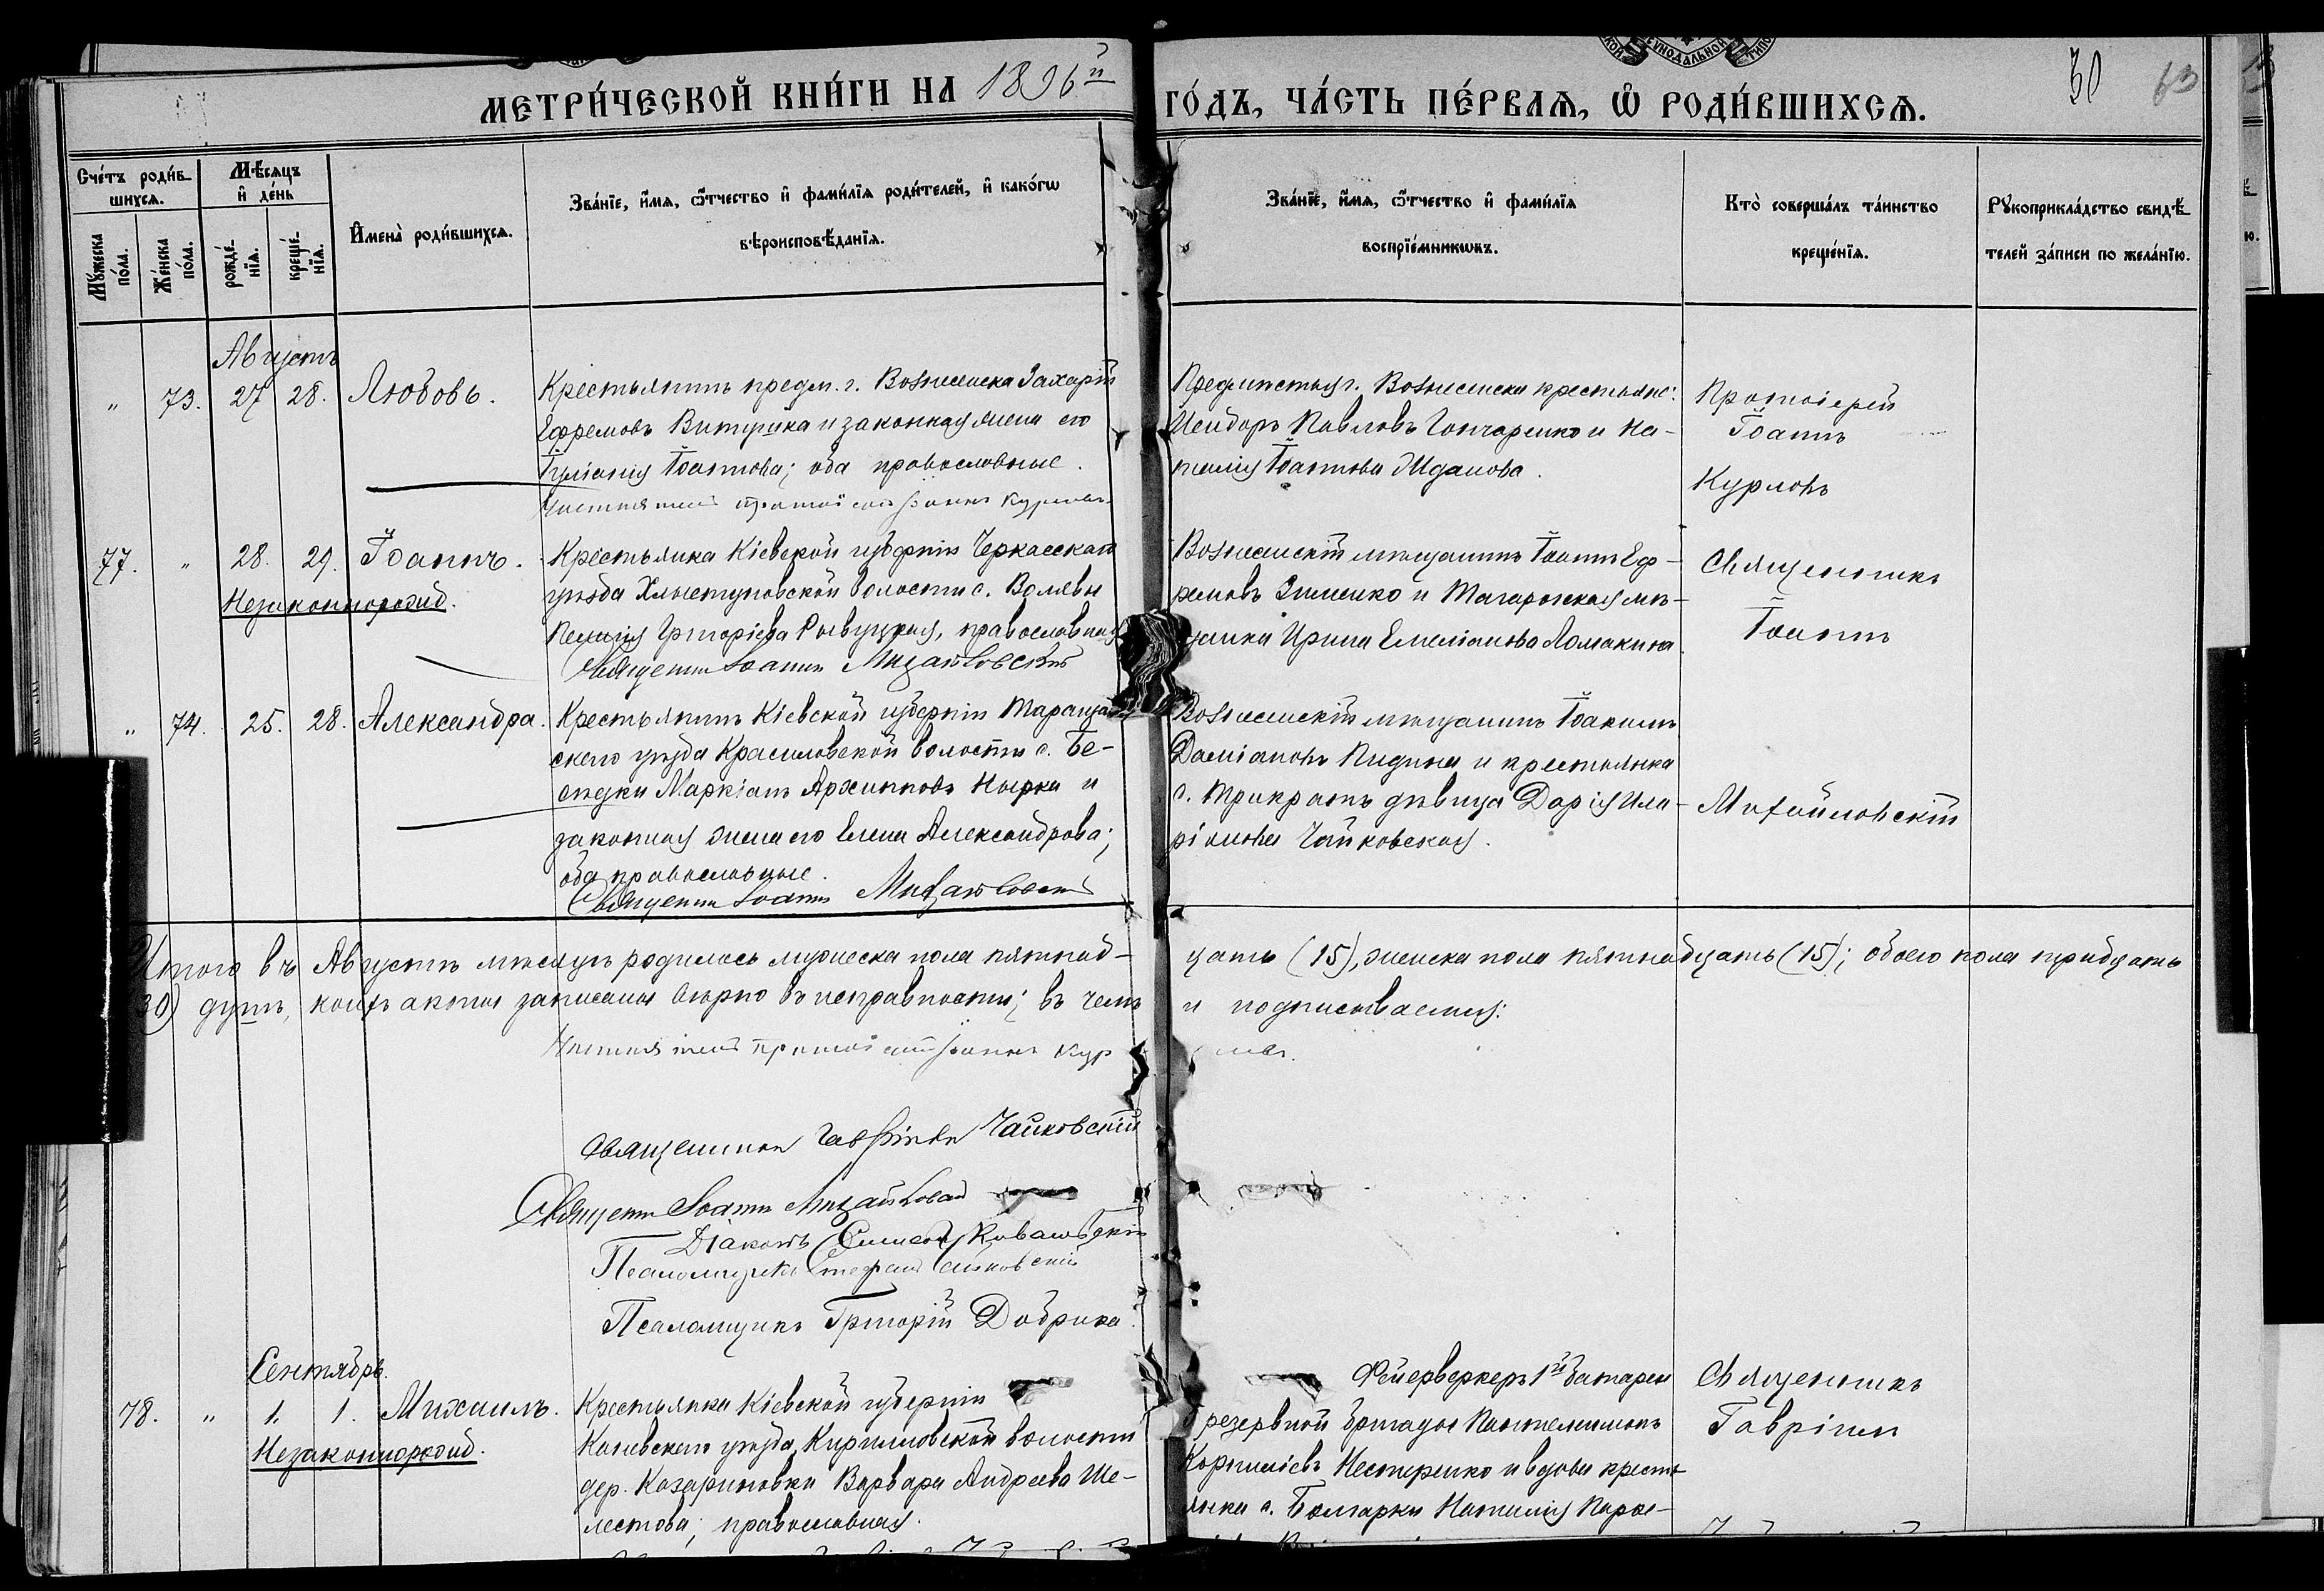 МЕТРИ́ЧЕСКОЙ КНИ́ГИ НА 1896й ГО́ДЪ, ЧА́СТЬ ПЕ́РВАЯ, Ѡ҆ РОДИ́ВШИХСЯ.
30 63
Сче́тъ роди́в-
шихся.
Мѣ́сяцъ
и҆ де́нь
Мꙋ́жеска по́ла.
Же́нска по́ла.
рожде́-
нїя.
креще́-
нїя.
И҆мена̀ роди́вшихся.
Зва́нїе, и҆́мя, ѻ҆́тчество и҆ фами́лїя роди́телей, и҆ како́гѡ
вѣроисповѣ́данїя.
Зва́нїе, и҆́мя, ѻ҆́тчество и҆ фами́лїя
воспрїе́мникѡвъ.
Кто̀ соверша́лъ та́инство
креще́нїя.
Рꙋкоприкла́дство свидѣ́-
телей за́писи по жела́нїю.
Августъ
" 73. 27 28. Любовь.
Крестьянинъ предм. г. Вознесенска Захарій
Ефремовъ Витушка и законная жена его
Іуліанія Іоаннова; оба православные.
Настоятель протоіерей Іоаннъ Курловъ
Предмѣстья г. Вознесенска крестьяне:
Исидоръ Павловъ Гончаренко и На-
талія Іоаннова Жданова.
Протоіерей
Іоаннъ
Курловъ
77. " 28. 29. Іоаннъ.
Незаконнорожд.
Крестьянка Кіевской губерніи Черкасскаго
уѣзда Хлыстуновской волости с. Валявы
Пелагія Григоріева , православная
Священникъ Іоаннъ Михайловскій
Вознесенскій мѣщанинъ Іоаннъ Еф-
ремовъ Зименко и Таганрогская мѣ-
щанка Ирина Емеліанова Ломакина
Священникъ
Іоаннъ
" 74. 25. 28. Александра.
Крестьянинъ Кіевской губерніи Таращан-
скаго уѣзда Красиловской волости с. Бе-
сѣдки Маркіанъ Архипповъ Нырка и
законная жена его Елена Александрова;
оба православные.
Священникъ Іоаннъ Михайловскій
Вознесенскій мѣщанинъ Іоакимъ
Даміановъ Пидина и крестьянка
с. Трикратъ дѣвица Дарія Ила-
ріонова Чайковская.
Михайловскій
Итого въ Августѣ мѣсяцѣ родилось мужеска пола пятнад-
цать (15), женска пола пятнадцать (15); обоего пола тридцать
(30) душъ, коихъ акты записаны вѣрно въ исправности; въ чемъ
и подписываемся:
Настоятель протоіерей Іоаннъ Курловъ.
Священникъ Гавріилъ Чайковскій
Священникъ Іоаннъ Михайловскій
Діаконъ Симеонъ Ковалевскій
Псаломщикъ Стефанъ Чайковскій
Псаломщикъ Григорій Добрика.
Сентябрь.
78. " 1. 1. Михаилъ.
Незаконнорожд.
Крестьянка Кіевской губерніи
Каневскаго уѣзда, Кирилловской волости
дер. Казариновки Варвара Андреева Ше-
лестова; православная.
Фейерверкеръ 1й батареи
резервной бригады Пантелеимонъ
Корниліевъ Нестеренко и вдова кресть-
янка с. Болгарки Наталія
Священникъ
Гавріилъ